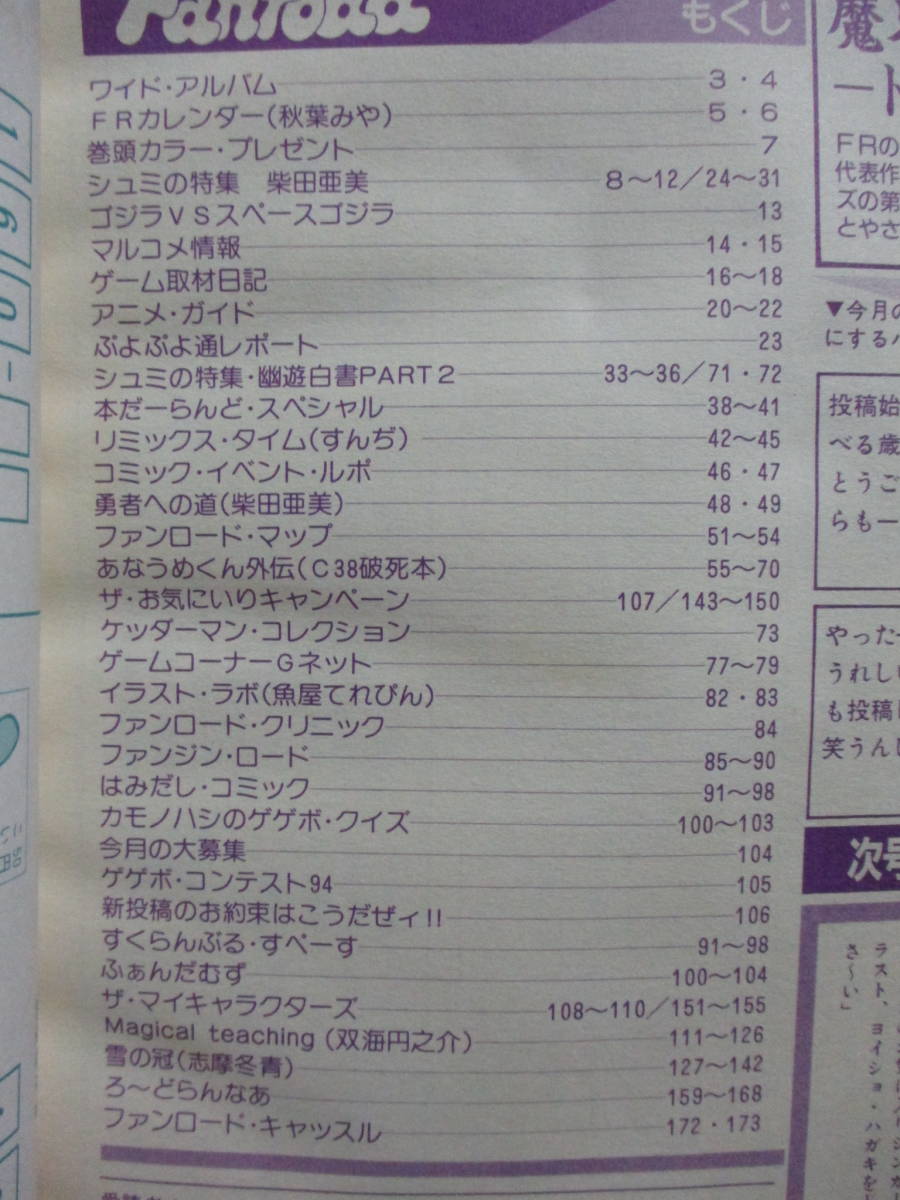 Fanroad
もくじ
ワイド・アルバム 3・4
FRカレンダー(秋葉みや) 5・6
巻頭カラー・プレゼント 7
シュミの特集 柴田亜美 8〜12/24〜31
ゴジラVSスペースゴジラ 13
マルコメ情報 14・15
ゲーム取材日記 16〜18
アニメ・ガイド 20〜22
ぷよぷよ通レポート 23
シュミの特集・幽遊白書PART2 33〜36/71・72
本だーらんど・スペシャル 38〜41
リミックス・タイム(すんぢ) 42〜45
コミック・イベント・ルポ 46・47
勇者への道(柴田亜美) 48・49
ファンロード・マップ 51〜54
あなうめくん外伝(C38破死本) 55〜70
ザ・お気にいりキャンペーン 107/143〜150
ケッダーマン・コレクション 73
ゲームコーナーGネット 77〜79
イラスト・ラボ(魚屋てれぴん) 82・83
ファンロード・クリニック 84
ファンジン・ロード 85〜90
はみだし・コミック 91〜98
カモノハシのゲゲボ・クイズ 100〜103
今月の大募集 104
ゲゲボ・コンテスト94 105
新投稿のお約束はこうだぜィ!! 106
すくらんぶる・すぺーす 91〜98
ふぁんだむず 100〜104
ザ・マイキャラクターズ 108〜110/151〜155
Magical teaching(双海円之介) 111〜126
雪の冠(志摩冬青) 127〜142
ろ〜どらんなあ 159〜168
ファンロード・キャッスル 172・173
魔
ート
FRの
代表作
ズの第
とやさ
▼今月の
にするハ
投稿始
べる歳
とうご
らも一
やった
うれしい
も投稿し
笑うんし
次号
ラスト、
ヨイショ・ハガキを
さ〜い」
160-